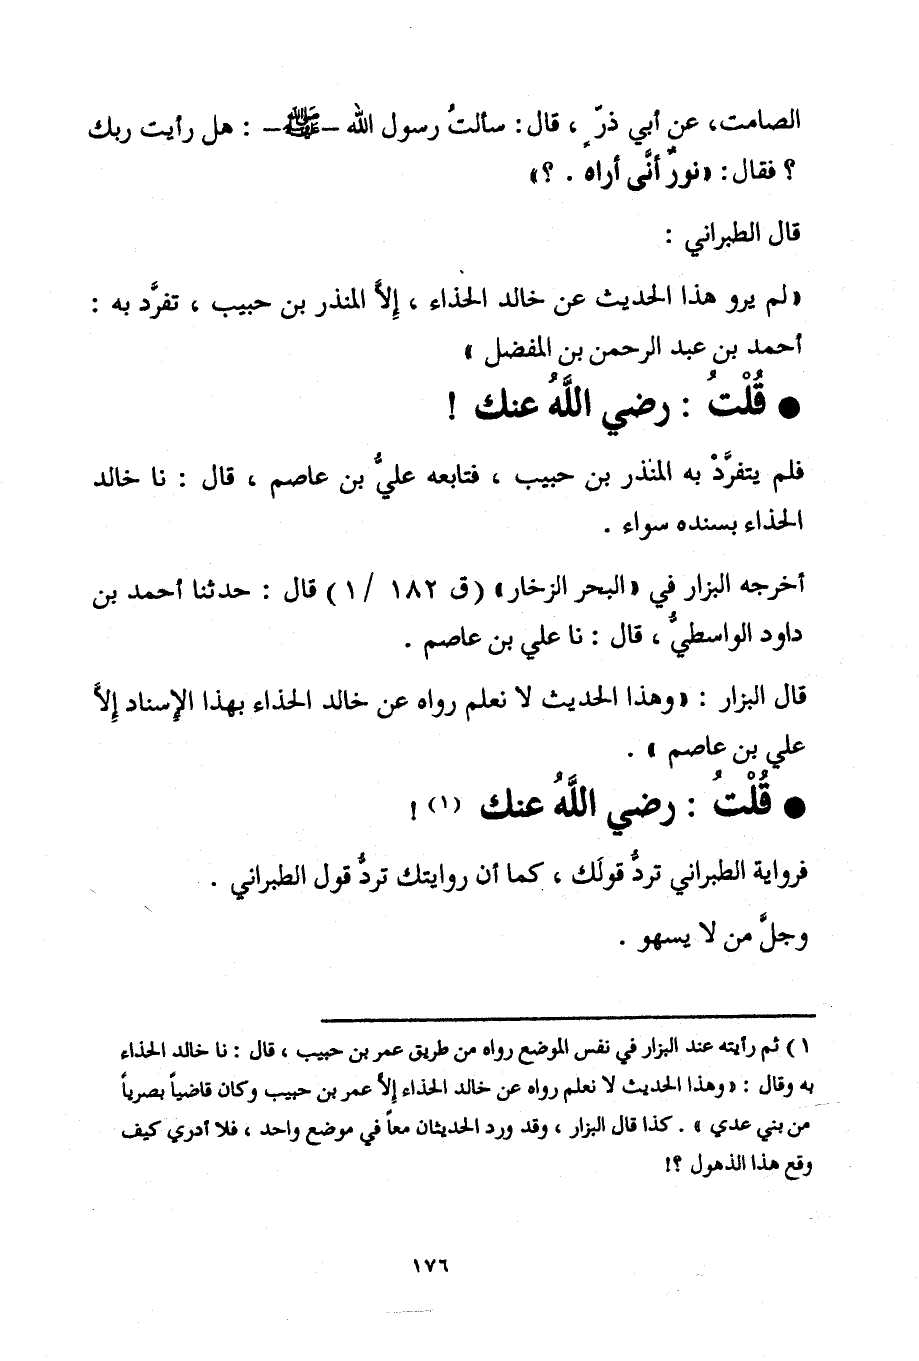 الصامت، عن أبي ذرّ ٍ ، قال: سألتُ رسول الله –ﷺ– : هل رأيت ربك
؟ فقال: «نورٌ أنَّى أراه . ؟»
قال الطبراني :
«لم يرو هذا الحديث عن خالد الحذاء ، إلاَّ المنذر بن حبيب ، تفرَّد به :
أحمد بن عبد الرحمن بن المفضل »
● قُلْتُ : رضي اللَّهُ عنك !
فلم يتفرَّدْ به المنذر بن حبيب ، فتابعه عليُّ بن عاصم ، قال : نا خالد
الحذاء بسنده سواء .
أخرجه البزار في «البحر الزخار» (ق ١٨٢ /١) قال : حدثنا أحمد بن
داود الواسطيُّ ، قال : نا علي بن عاصم .
قال البزار : «وهذا الحديث لا نعلم رواه عن خالد الحذاء بهذا الإسناد إلاَّ
علي بن عاصم » .
● قُلْتُ : رضي اللَّهُ عنك (١) !
فرواية الطبراني تردُّ قولَك ، كما أن روايتك تردُّ قول الطبراني .
وجلَّ من لا يسهو .
١) ثم رأيته عند البزار في نفس الموضع رواه من طريق عمر بن حبيب ، قال : نا خالد الحذاء
به وقال : «وهذا الحديث لا نعلم رواه عن خالد الحذاء إلاَّ عمر بن حبيب وكان قاضياً بصرياً
من بني عدي » . كذا قال البزار ، وقد ورد الحديثان معاً في موضع واحد ، فلا أدري كيف
وقع هذا الذهول ؟!
١٧٦